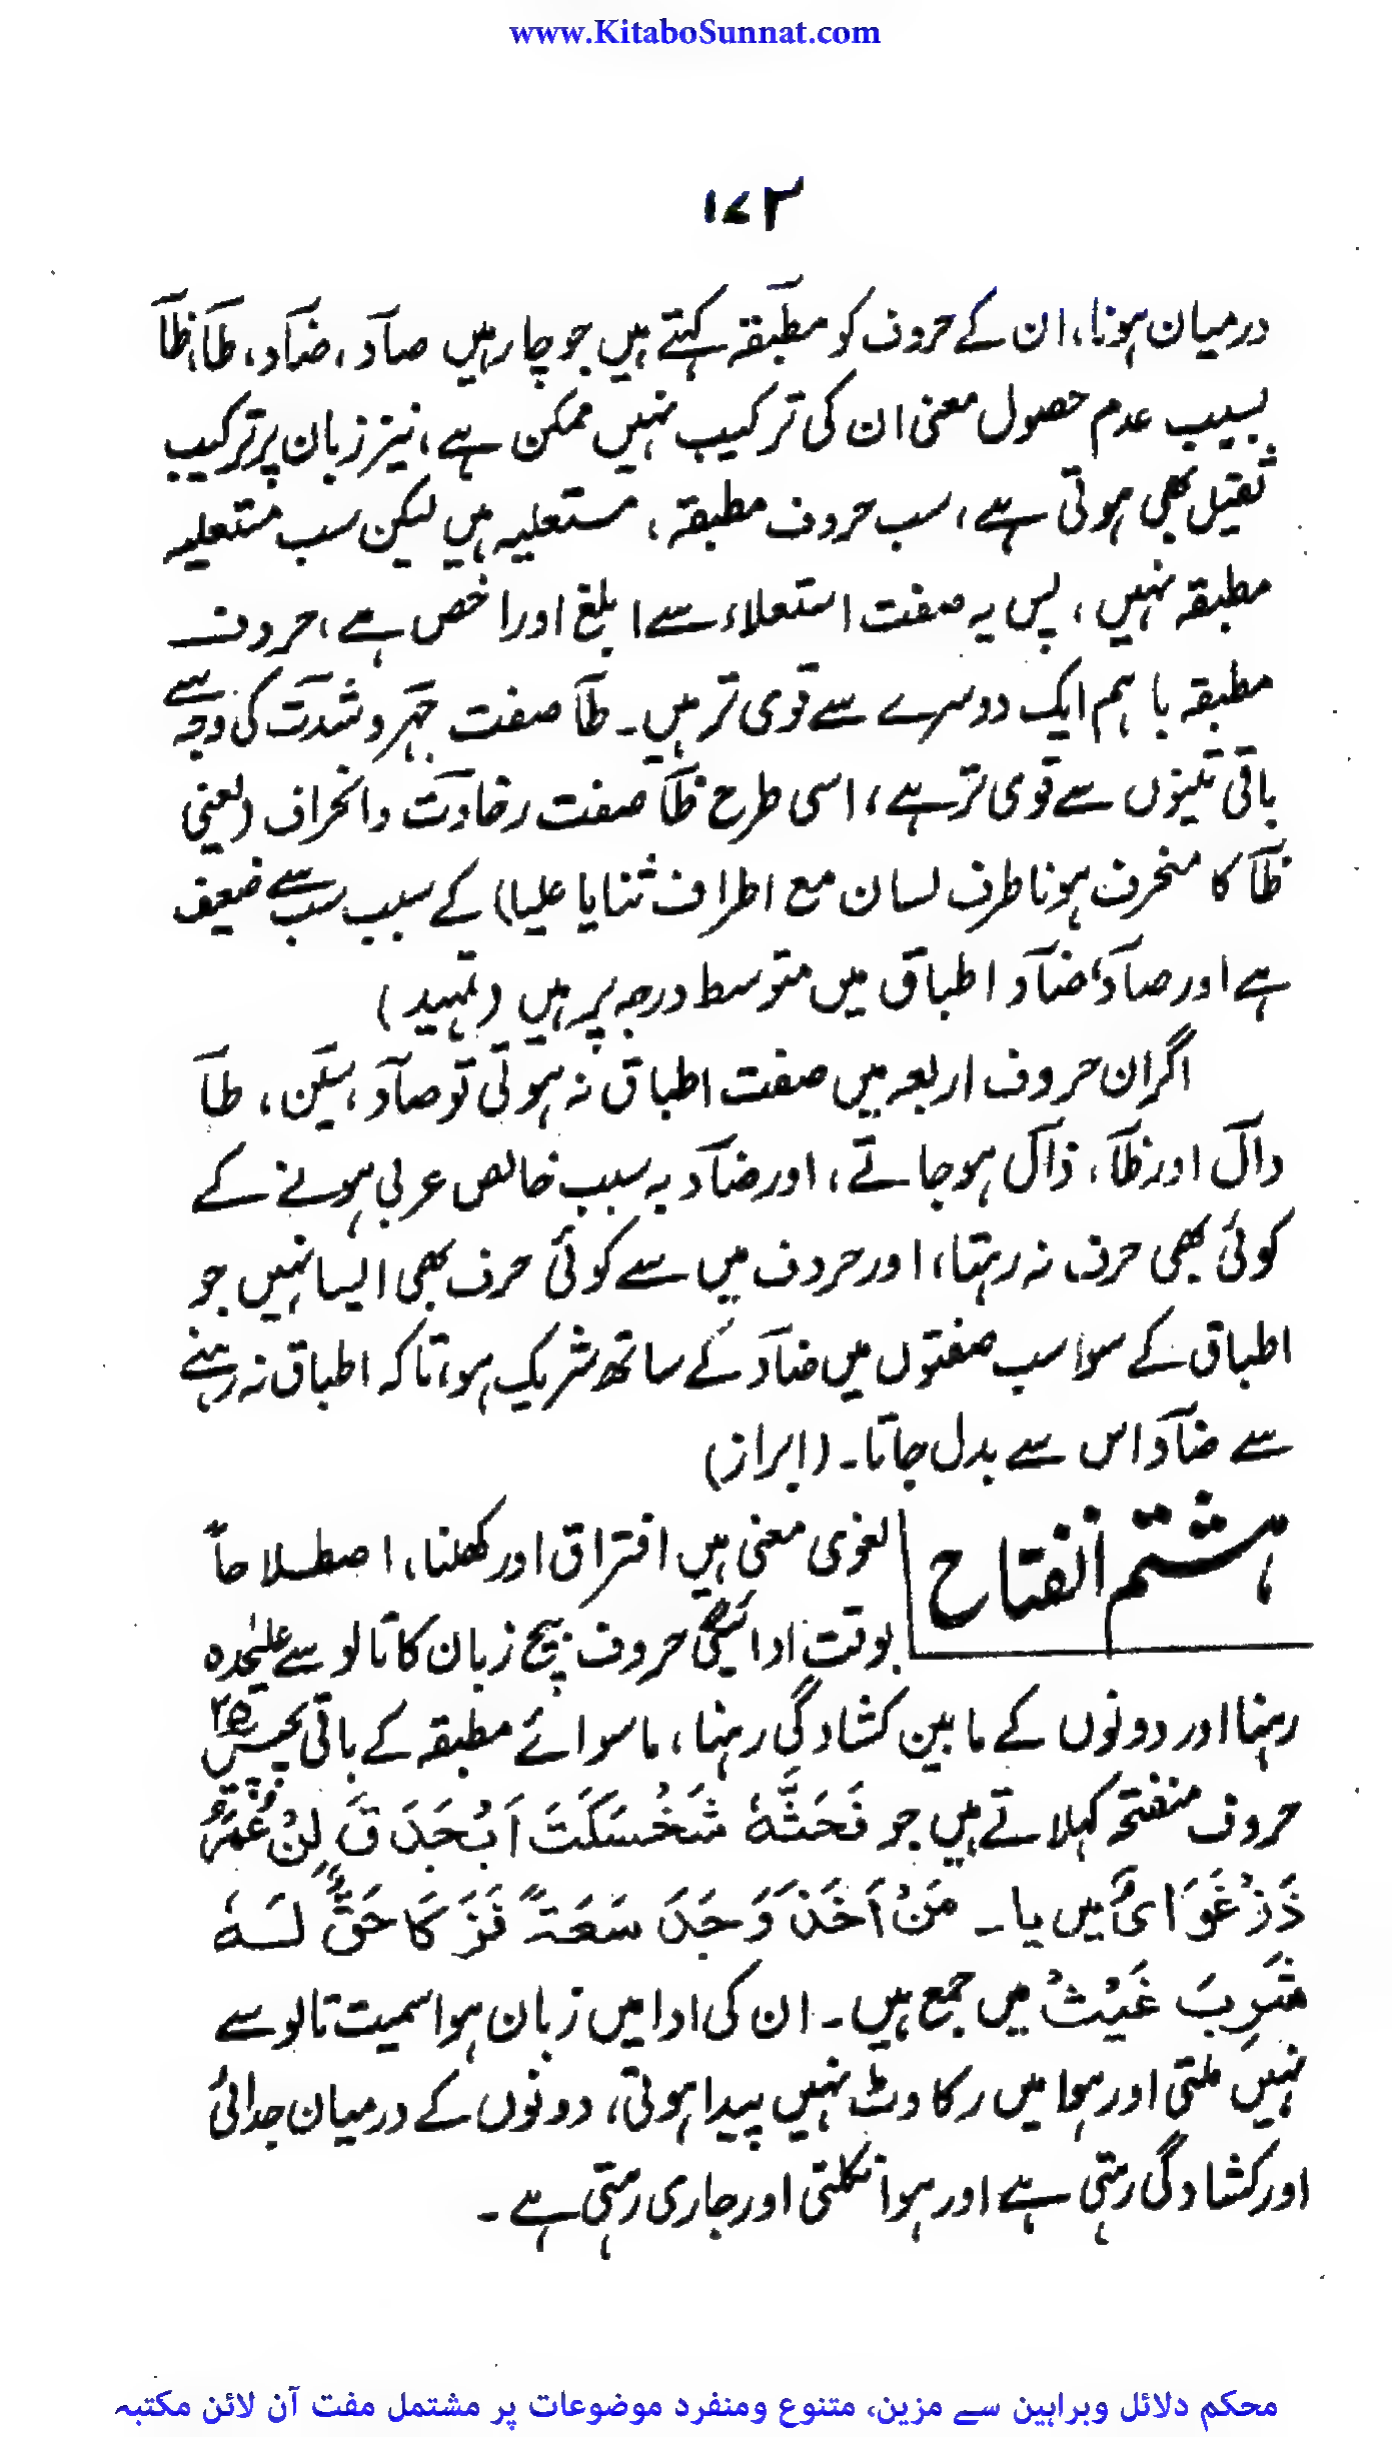 www.KitaboSunnat.com
۱۷۳
درمیان ہونا، ان کے حروف کو مطبقہ کہتے ہیں جو چار ہیں صآد، ضآد، طآ، ظآ
بسبب عدم حصول معنی ان کی ترکیب نہیں ممکن ہے، نیز زبان پر ترکیب
ثقیل بھی ہوتی ہے، سب حروف مطبقہ، مستعلیہ ہیں لیکن سب مستعلیہ
مطبقہ نہیں، پس یہ صفت استعلاء سے ابلغ اور اخص ہے، حروف
مطبقہ باہم ایک دوسرے سے قوی تر ہیں۔ طآ صفت جہر و شدت کی وجہ سے
باقی تینوں سے قوی تر ہے، اسی طرح ظآ صفت رخاوت وانحراف (یعنی
ظآ کا منحرف ہونا طرف لسان مع اطراف ثنایا علیا) کے سبب سب سے ضعیف
ہے اور صآد، ضآد اطباق میں متوسط درجہ پر ہیں (تمہید)
اگر ان حروف اربعہ میں صفت اطباق نہ ہوتی تو صآد، سین، طآ
دآل اور ظآ، ذآل ہو جاتے، اور ضآد بہ سبب خالص عربی ہونے کے
کوئی بھی حرف نہ رہتا، اور حروف میں سے کوئی حرف بھی ایسا نہیں جو
اطباق کے سوا سب صفتوں میں ضآد کے ساتھ شریک ہو، تاکہ اطباق نہ رہنے
سے ضآد اس سے بدل جاتا۔ (ابراز)
ہشتم انفتاح
لغوی معنی ہیں افتراق اور کھلنا، اصطلاحاً
بوقت ادائیگی حروف بیچ زبان کا تالو سے علیٰحدہ
رہنا اور دونوں کے مابین کشادگی رہنا، ماسوائے مطبقہ کے باقی پچیس ۲۵
حروف منفتحہ کہلاتے ہیں جو فَحَثَّهٗ شَخْسَكَتَ اَبْجَدَ قَ لِنْ عُمَرُ
ذَزْغَوَاىُ ہیں یا۔ مَنْ اَخَذَ وَجَدَ سَعَةً فَزَكَا حَقٌّ لَهٗ
شَرِبَ غَيْثُ میں جمع ہیں۔ ان کی ادا میں زبان ہوا سمیت تالو سے
نہیں ملتی اور ہوا میں رکاوٹ نہیں پیدا ہوتی، دونوں کے درمیان جدائی
اور کشادگی رہتی ہے اور ہوا نکلتی اور جاری رہتی ہے۔
محکم دلائل وبراہین سے مزین، متنوع ومنفرد موضوعات پر مشتمل مفت آن لائن مکتبہ